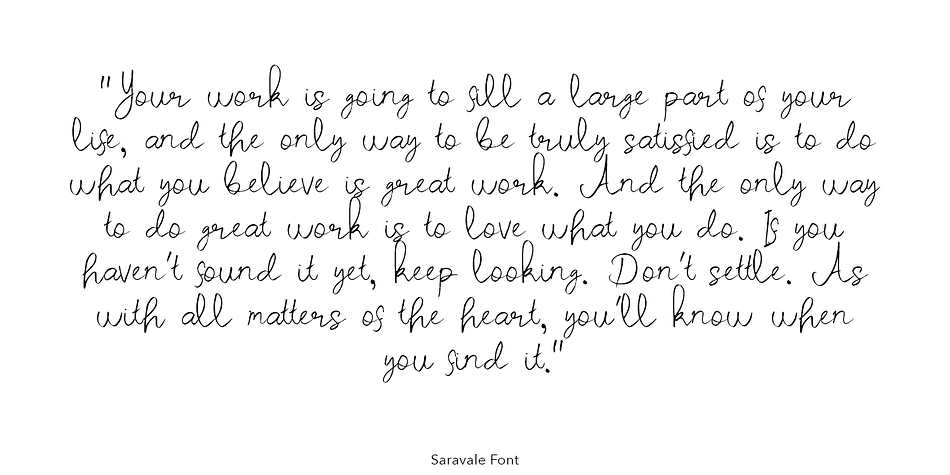 "Your work is going to fill a large part of your
life, and the only way to be truly satisfied is to do
what you believe is great work. And the only way
to do great work is to love what you do. If you
haven't found it yet, keep looking. Don't settle. As
with all matters of the heart, you'll know when
you find it."
Saravale Font